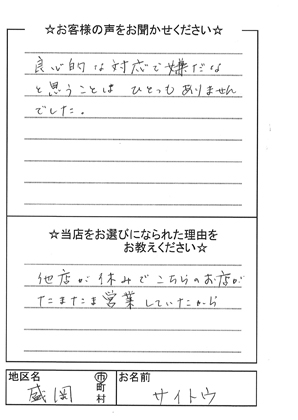 ☆お客様の声をお聞かせください☆
良心的な対応で嫌だな
と思うことは ひとつもありません
でした。
☆当店をお選びになられた理由を
お教えください☆
他店が休みでこちらのお店が
たまたま営業していたから
地区名 盛岡 市町村 お名前 サイトウ